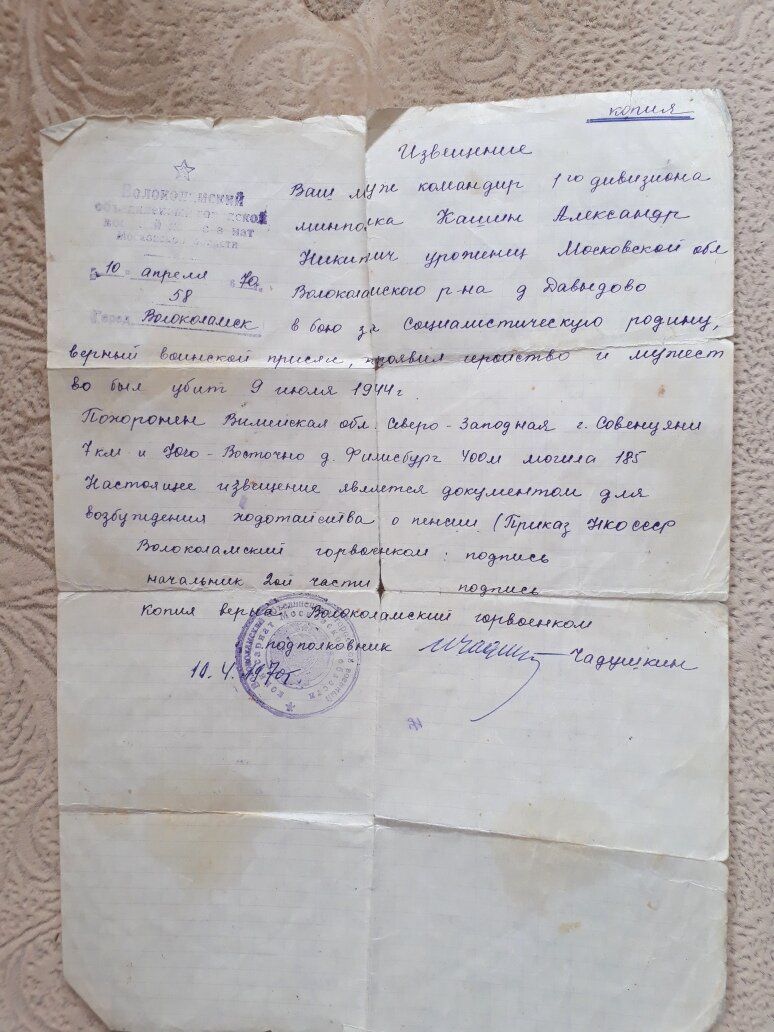 копия
Извещение
Волоколамский
объединенный городской
Московской области
10 апреля 70
58
Город Волоколамск
Ваш муж командир 1го дивизиона
минполка Кашин Александр
Никитич уроженец Московской обл
Волоколамского р-на д Давыдово
в бою за социалистическую родину,
верный воинской присяге, проявил геройство и мужест
во был убит 9 июля 1944г.
Похоронен Вилейская обл. Северо-Западная г. Совенцяни
7км и Юго-Восточно д. Филисбург 400м могила 185
Настоящее извещение является документом для
возбуждения ходотайства о пенсии (Приказ НКО СССР
Волоколамский горвоенком: подпись
начальник 2ой части подпись
Копия верна Волоколамский горвоенком
подполковник Чадушкин
10.4.1970г.